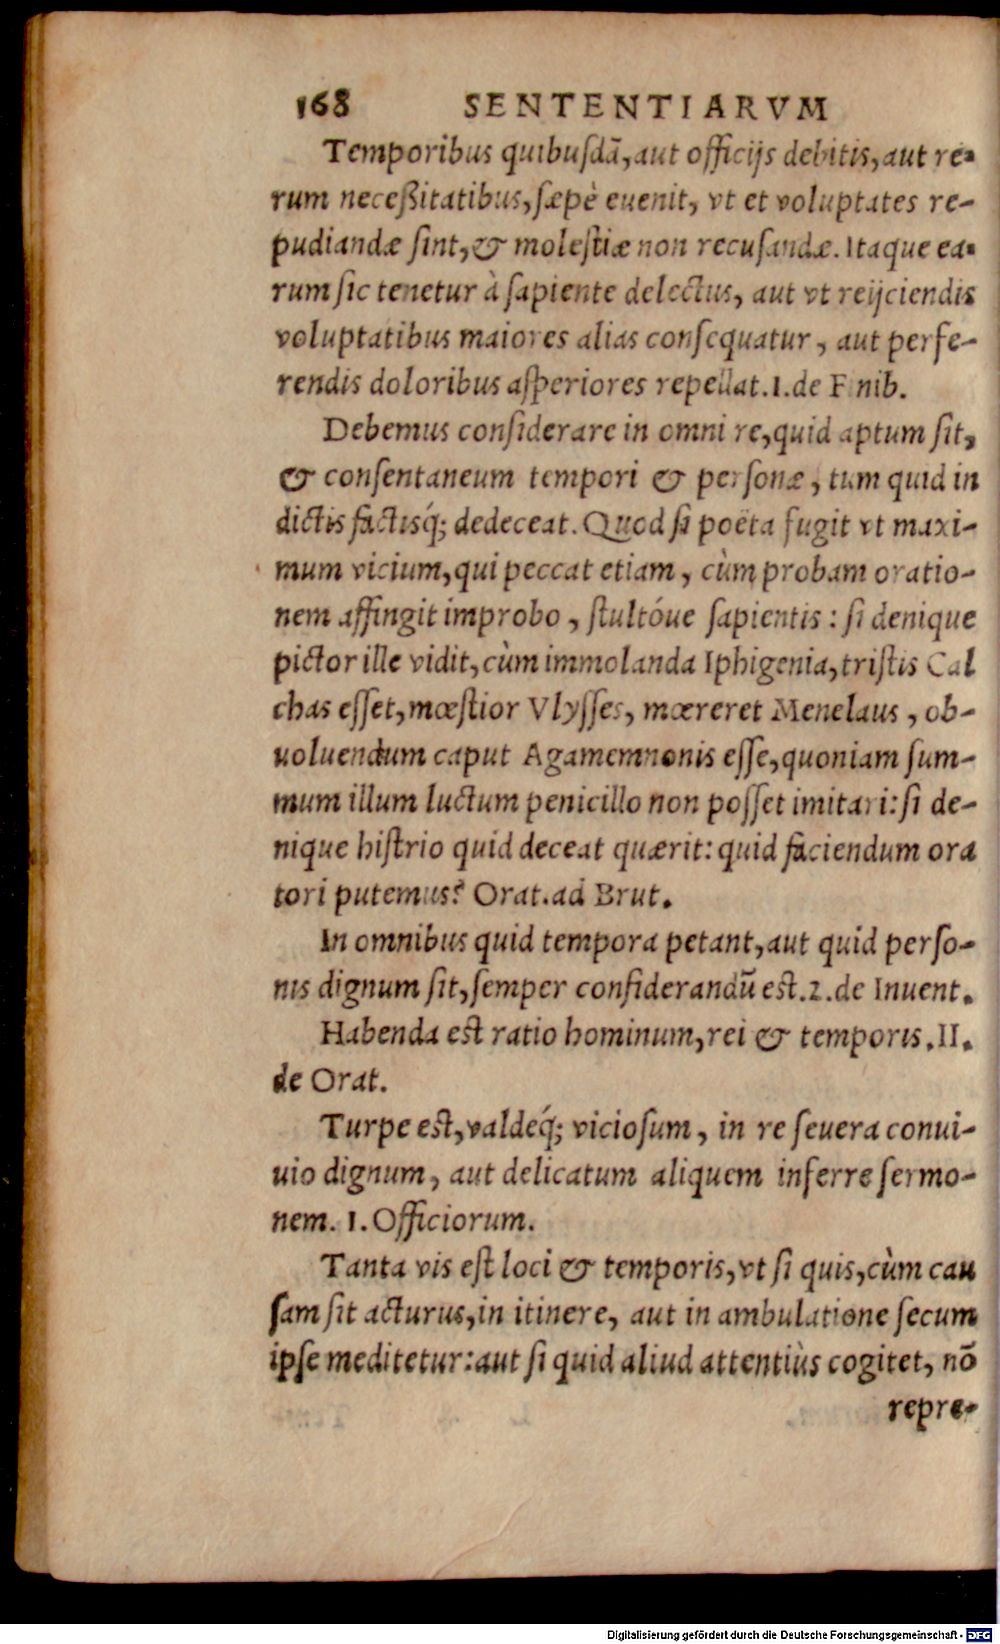 168 SENTENTIARVM
Temporibus quibuſdã, aut officijs debitis, aut re-
rum neceßitatibus, ſæpè euenit, vt et voluptates re-
pudiandæ ſint, & moleſtiæ non recuſandæ. Itaque ea-
rum ſic tenetur à ſapiente delectus, aut vt reijciendis
voluptatibus maiores alias conſequatur, aut perfe-
rendis doloribus aſperiores repellat. 1. de Finib.
Debemus conſiderare in omni re, quid aptum ſit,
& conſentaneum tempori & perſonæ, tum quid in
dictis factisq́; dedeceat. Quod ſi poëta fugit vt maxi-
mum vicium, qui peccat etiam, cùm probam oratio-
nem affingit improbo, ſtultóue ſapientis: ſi denique
pictor ille vidit, cùm immolanda Iphigenia, triſtis Cal
chas eſſet, mœſtior Vlyſſes, mœreret Menelaus, ob-
uoluendum caput Agamemnonis eſſe, quoniam ſum-
mum illum luctum penicillo non poſſet imitari: ſi de-
nique hiſtrio quid deceat quærit: quid faciendum ora
tori putemus? Orat. ad Brut.
In omnibus quid tempora petant, aut quid perſo-
nis dignum ſit, ſemper conſiderandũ eſt. 2. de Inuent.
Habenda eſt ratio hominum, rei & temporis. II.
de Orat.
Turpe eſt, valdeq́; vicioſum, in re ſeuera conui-
uio dignum, aut delicatum aliquem inferre ſermo-
nem. 1. Officiorum.
Tanta vis eſt loci & temporis, vt ſi quis, cùm cau
ſam ſit acturus, in itinere, aut in ambulatione ſecum
ipſe meditetur: aut ſi quid aliud attentiùs cogitet, nõ
repre-
Digitalisierung gefördert durch die Deutsche Forschungsgemeinschaft - DFG